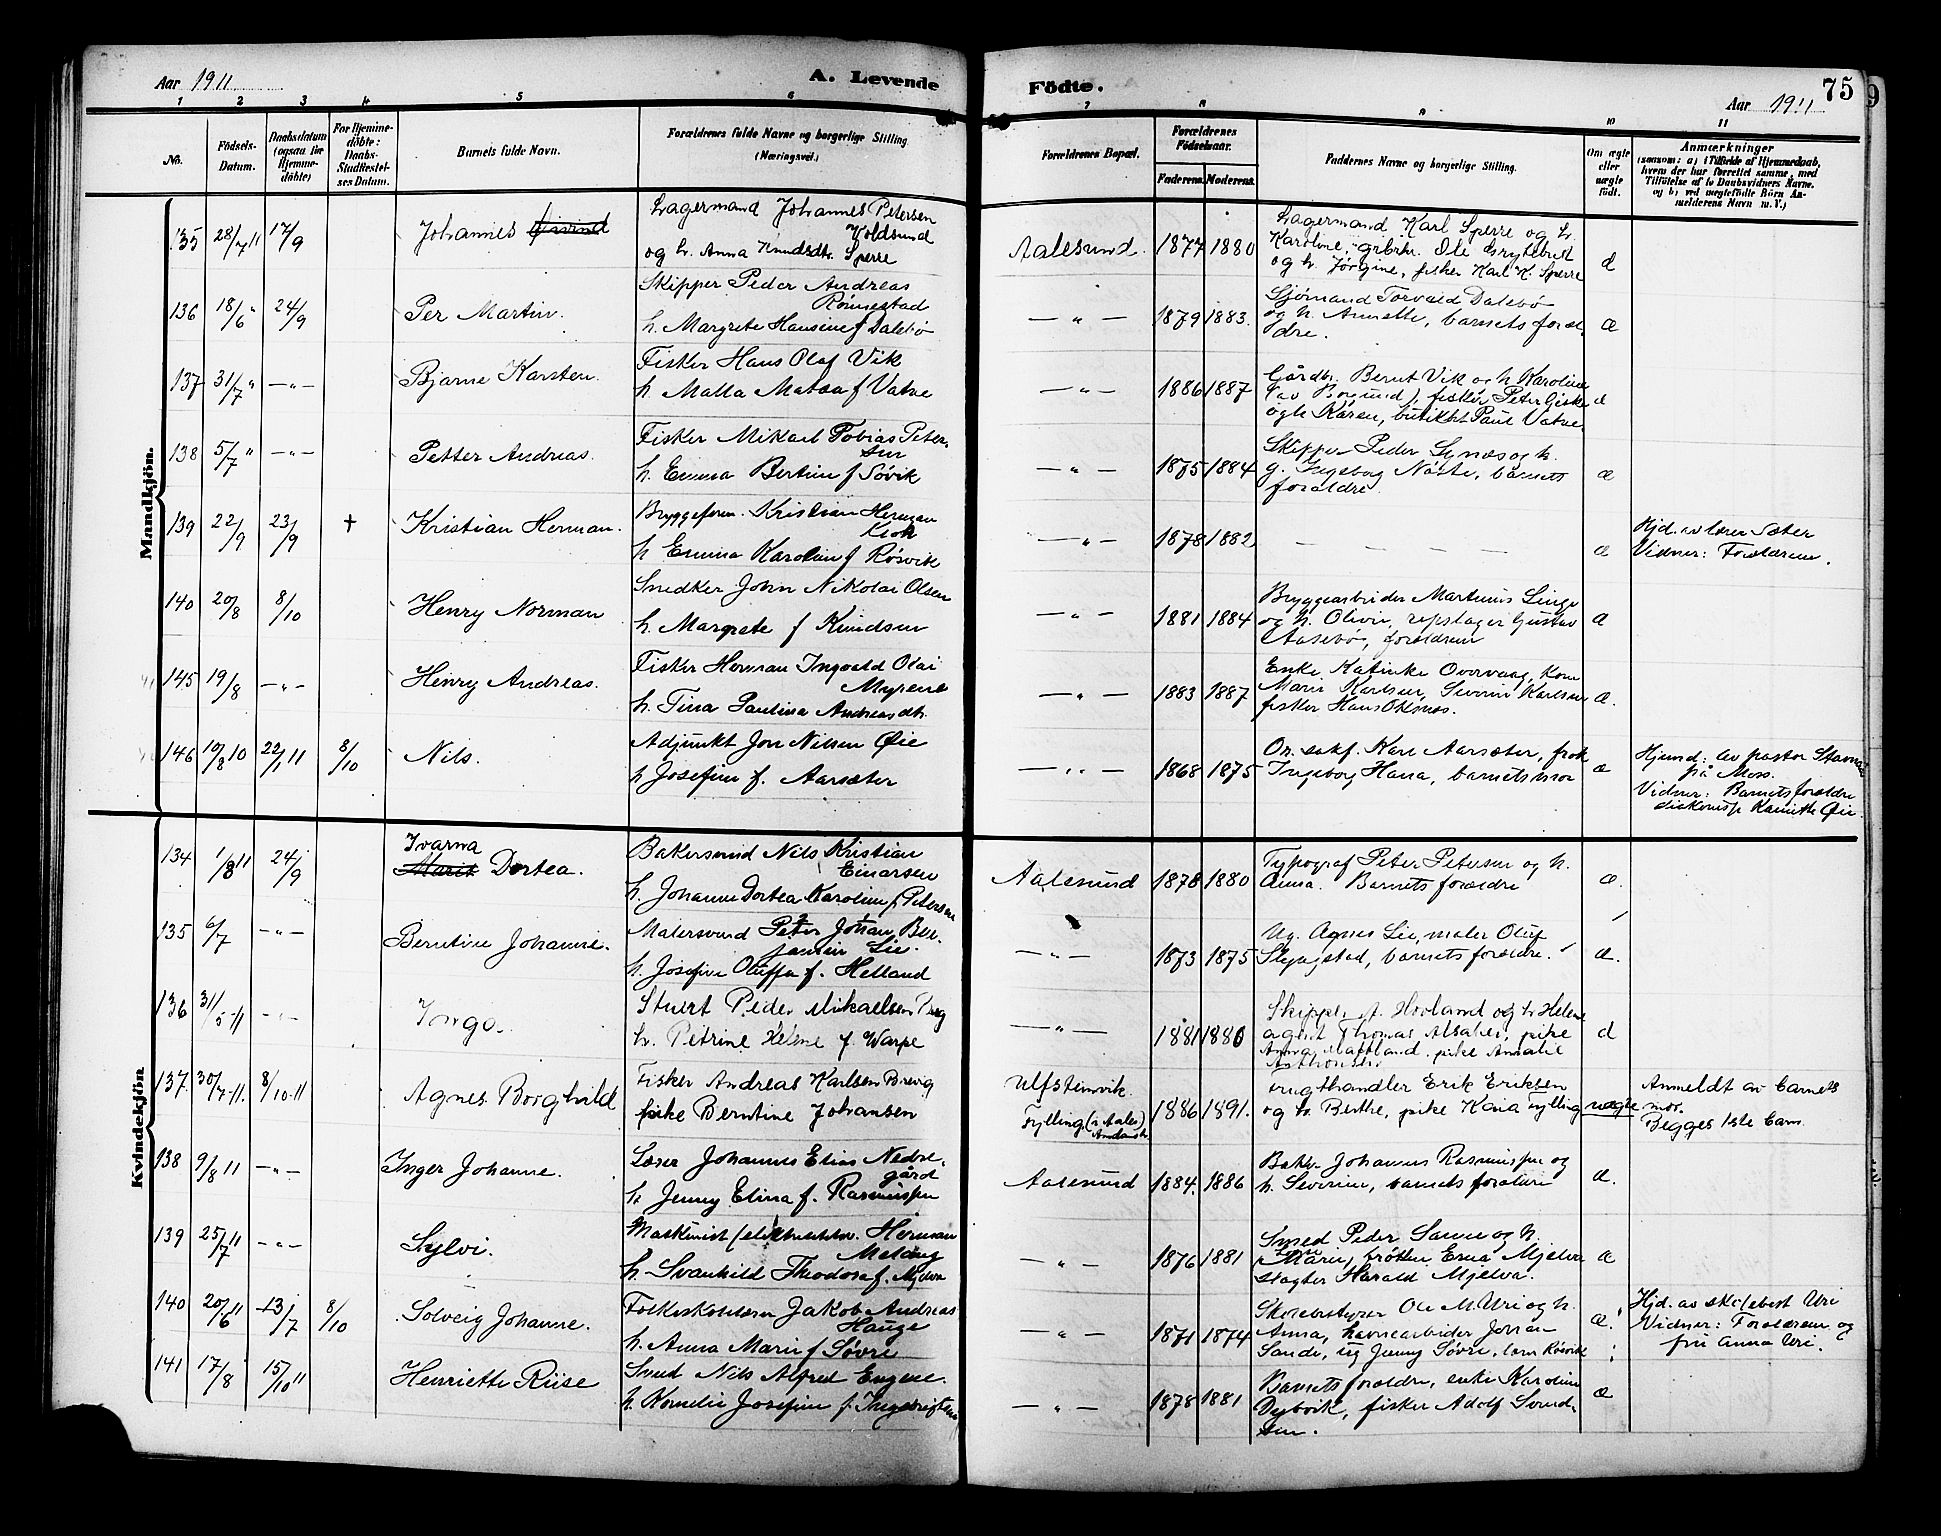 Aar 1911
A. Levende
Födte.
Aar 1911
75
1 2 3 4 5 6 7 8 9 10 11
No.
Födsels-
Datum.
Daabsdatum
(ogsaa for
Hjemme-
döbte)
For Hjemme-
döbte:
Daabs-
Stadfæstel-
ses Datum.
Barnets fulde Navn.
Forældrenes fulde Navne og borgerlige Stilling
(Næringsvei.)
Forældrenes Bopæl.
Forældrenes
Födselsaar.
Faderens. Moderens.
Faddernes Navne og borgerlige Stilling.
Om ægte
eller
uægte
födt.
Anmærkninger
(saasom: a) i Tilfælde af Hjemmedaab,
hvem der har forrettet samme, med
Tilföielse af to Daabsvidners Navne,
og b) ved uægtefödte Börn An-
melderens Navn m. V.)
Mandkjön.
135 28/7 11 17/9 Johannes
Lagermand Johannes Petersen
Koldsund
og h. Anna Knudsdtr. Sperre
Aalesund. 1877 1880
Lagermand Karl Sperre og h.
Karoline, grbrkr. Ole Grytebust
og h. Jørgine, fisker Karl K. Sperre
136 18/6 " 24/9 Per Martin.
Skipper Peder Andreas
Rønnestad
h. Margrete Hansine f Dalebø
— " — 1879 1883.
Sjømand Torvald Dalebø
og h. Annette, barnets foræl-
dre.
æ
137 31/7 " — " — Bjarne Karsten.
Fisker Hans Olaf Vik
h. Malla Matea f Vatne
— " — 1886 1887
Gårdbr. Bernt Vik og h Karoline
(av Borgund), fisker Peter Giske
og h Karen, Paul Vatne.
138 5/7 " — " — Petter Andreas.
Fisker Mikael Tobias Peter-
sen
h. Emma Bertine f Søvik
— " — 1875 1884
Skipper Peder Synæs og h.
g. Ingeborg Nøste, barnets
forældre.
æ
139 22/9 23/9 † Kristian Herman.
Bryggeform. Kristian Herman
h Emma Karoline f Røsvik
— " — 1878 1882
— — — —
æ
Hjd. av lærer Sæter
Vidner: Forældrene.
140 20/8 8/10 Henry Norman
Snedker John Nikolai Olsen
h. Margrete f Knudsen
— " — 1881 1884
Bryggearbeider Martinus Linge
og h. Olivie, repslager Gustav
Aasebø, forældrene
æ
145 19/8 — " — Henry Andreas.
Fisker Herman Ingvald Olai
Myrene
h. Tina Paulina Andreasdtr.
— " — 1883 1887
Enke Katinke Overvaag, kone
Marie Karlsen, Severin Karlsen
fisker Hans Oksnæs.
æ.
146 10/8 10 22/1 11 8/10 Nils.
Adjunkt Jon Nilsen Øie
h Josefine f. Aarsæter
— " — 1868 1875
O.r. sakf. Karl Aarsæter, frøk
Ingeborg Hana, barnets mor
æ
Hjemd: av pastor
på Moss.
Vidner: Barnets forældre
Øie
Kvindekjön
134 1/8 11 24/9
Ivarna
Marit Dortea.
Bakersvend Nils Kristian
Einarsen
h. Johanne Dortea Karoline f Petersen
Aalesund 1878 1880
Typograf Peter Petersen og h.
Anna. Barnets forældre
æ.
135 6/7 — " — Berntine Johanne.
Malersvend Peter Johan Ben-
jamin Lie
h. Josefine Oluffa f. Helland
— " — 1873 1875
Ug. Agnes Lie, maler Oluf
barnets forældre.
æ.
136 31/5 -11 — " — Inga.
Stuert Peder Mikaelsen
h. Petrine Helene f Warpe
— " — 1881
Skipper A. Hovland og h Helene
agent Thomas pike
Anna pike Amalie
137. 30/7-11. 8/10-11 Agnes Borghild
Fisker Andreas Karlsen Brevig
pike Berntine Johansen
Ulfstenvik.
Fylling (v. Aales)
1886 1891.
Frugthandler Erik Eriksen
og h. Berthe, pike Kaia Fylling
uægte
Anmeldt av barnets
mor.
Begges 1ste barn.
138 9/8 11 — " — Inger Johanne.
Læser Johannes Elias Nedre-
gård
h. Jenny Elina f. Rasmussen
Aalesund 1884. 1886
Baker Johannes Rasmussen og
h. Severine, barnets forældre
æ.
139 25/7 11 — " — Sylvi.
Maskinist Herman
h. Svanhild Theodora f. Mjelva
— " — 1876 1881
Smed Peder Sanne og h.
Marie, frøken Erna Mjelva
slagter Harald Mjelva.
æ
140 20/6 11 13/7 8/10 Solveig Johanne.
Folkeskolelærer Jakob Andreas
Hauge
h. Anna Marie f Søvre
— " — 1871 1874
Skolebestyrer Ole M. Uri og h.
Anna, havnearbeider Johan
Sande, ug Jenny Søvre,
æ.
Hjd. av skolebest Uri
Vidner: Forældrene og
fru Anna Uri.
141 17/8 15/10 11 Henriette Riise
Smed Nils Alfred Engene.
h. Kornelie Josefine f. Ingebrigtsen
— " — 1878 1881
Barnets forældre, enke Karoline
Dybvik, fisker Adolf Svend-
sen.
æ